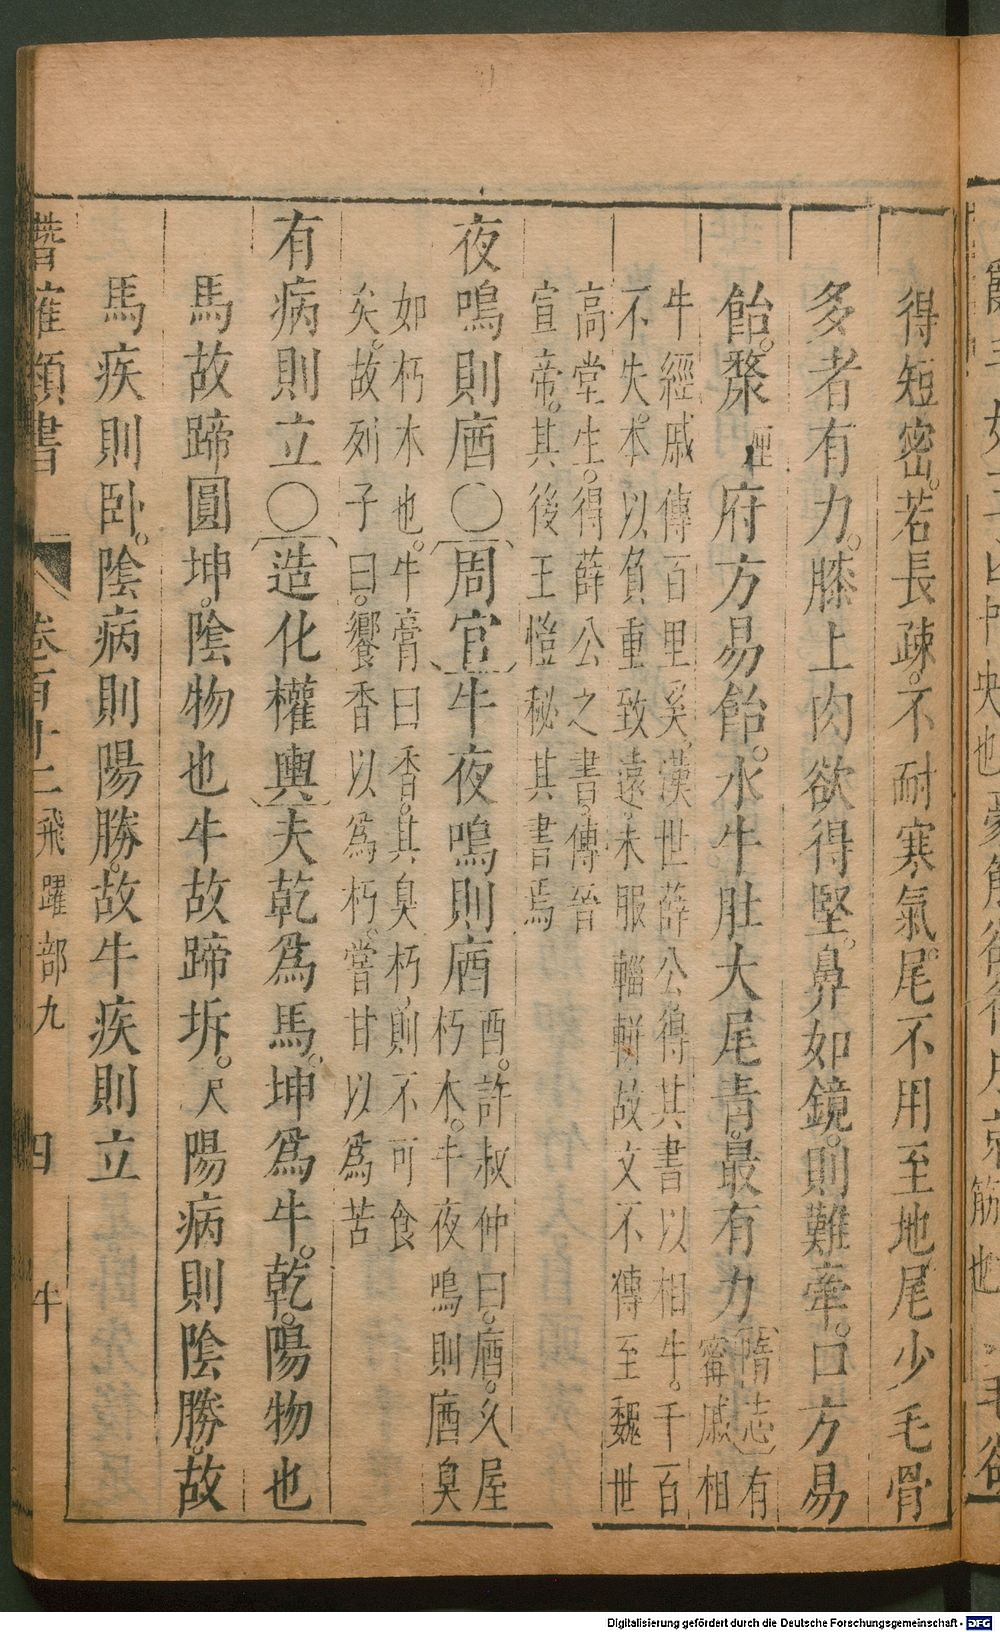 得短密。若長疎。不耐寒氣。尾不用至地尾少毛骨
多者有力。膝上肉欲得堅。鼻如鏡。則難牽。口方易
飴。漦府方易飴。水牛肚大尾青。最有力隋志有
甯戚相
牛經戚傳百里奚。漢世薛公得其書以相牛。千百
不失。本以負重致遠。未服輜軿故文不傳至魏世
高堂生。得薛公之書。傳晉
宣帝。其後王愷秘其書焉
夜鳴則庮○周官牛夜鳴則庮酉。許叔仲曰。庮。久屋
朽木。牛夜鳴則庮臭
如朽木也。牛膏曰香。其臭朽。則不可食
矣。故列子曰。饗香以為朽。嘗甘以為苦
有病則立○造化權輿夫乾爲馬。坤爲牛。乾。陽物也
馬故蹄圓坤。陰物也牛故蹄坼。尺陽病則陰勝。故
馬疾則卧。陰病則陽勝。故牛疾則立
潛確類書 卷百十二 飛躍部九 四 牛
Digitalisierung gefördert durch die Deutsche Forschungsgemeinschaft - DFG